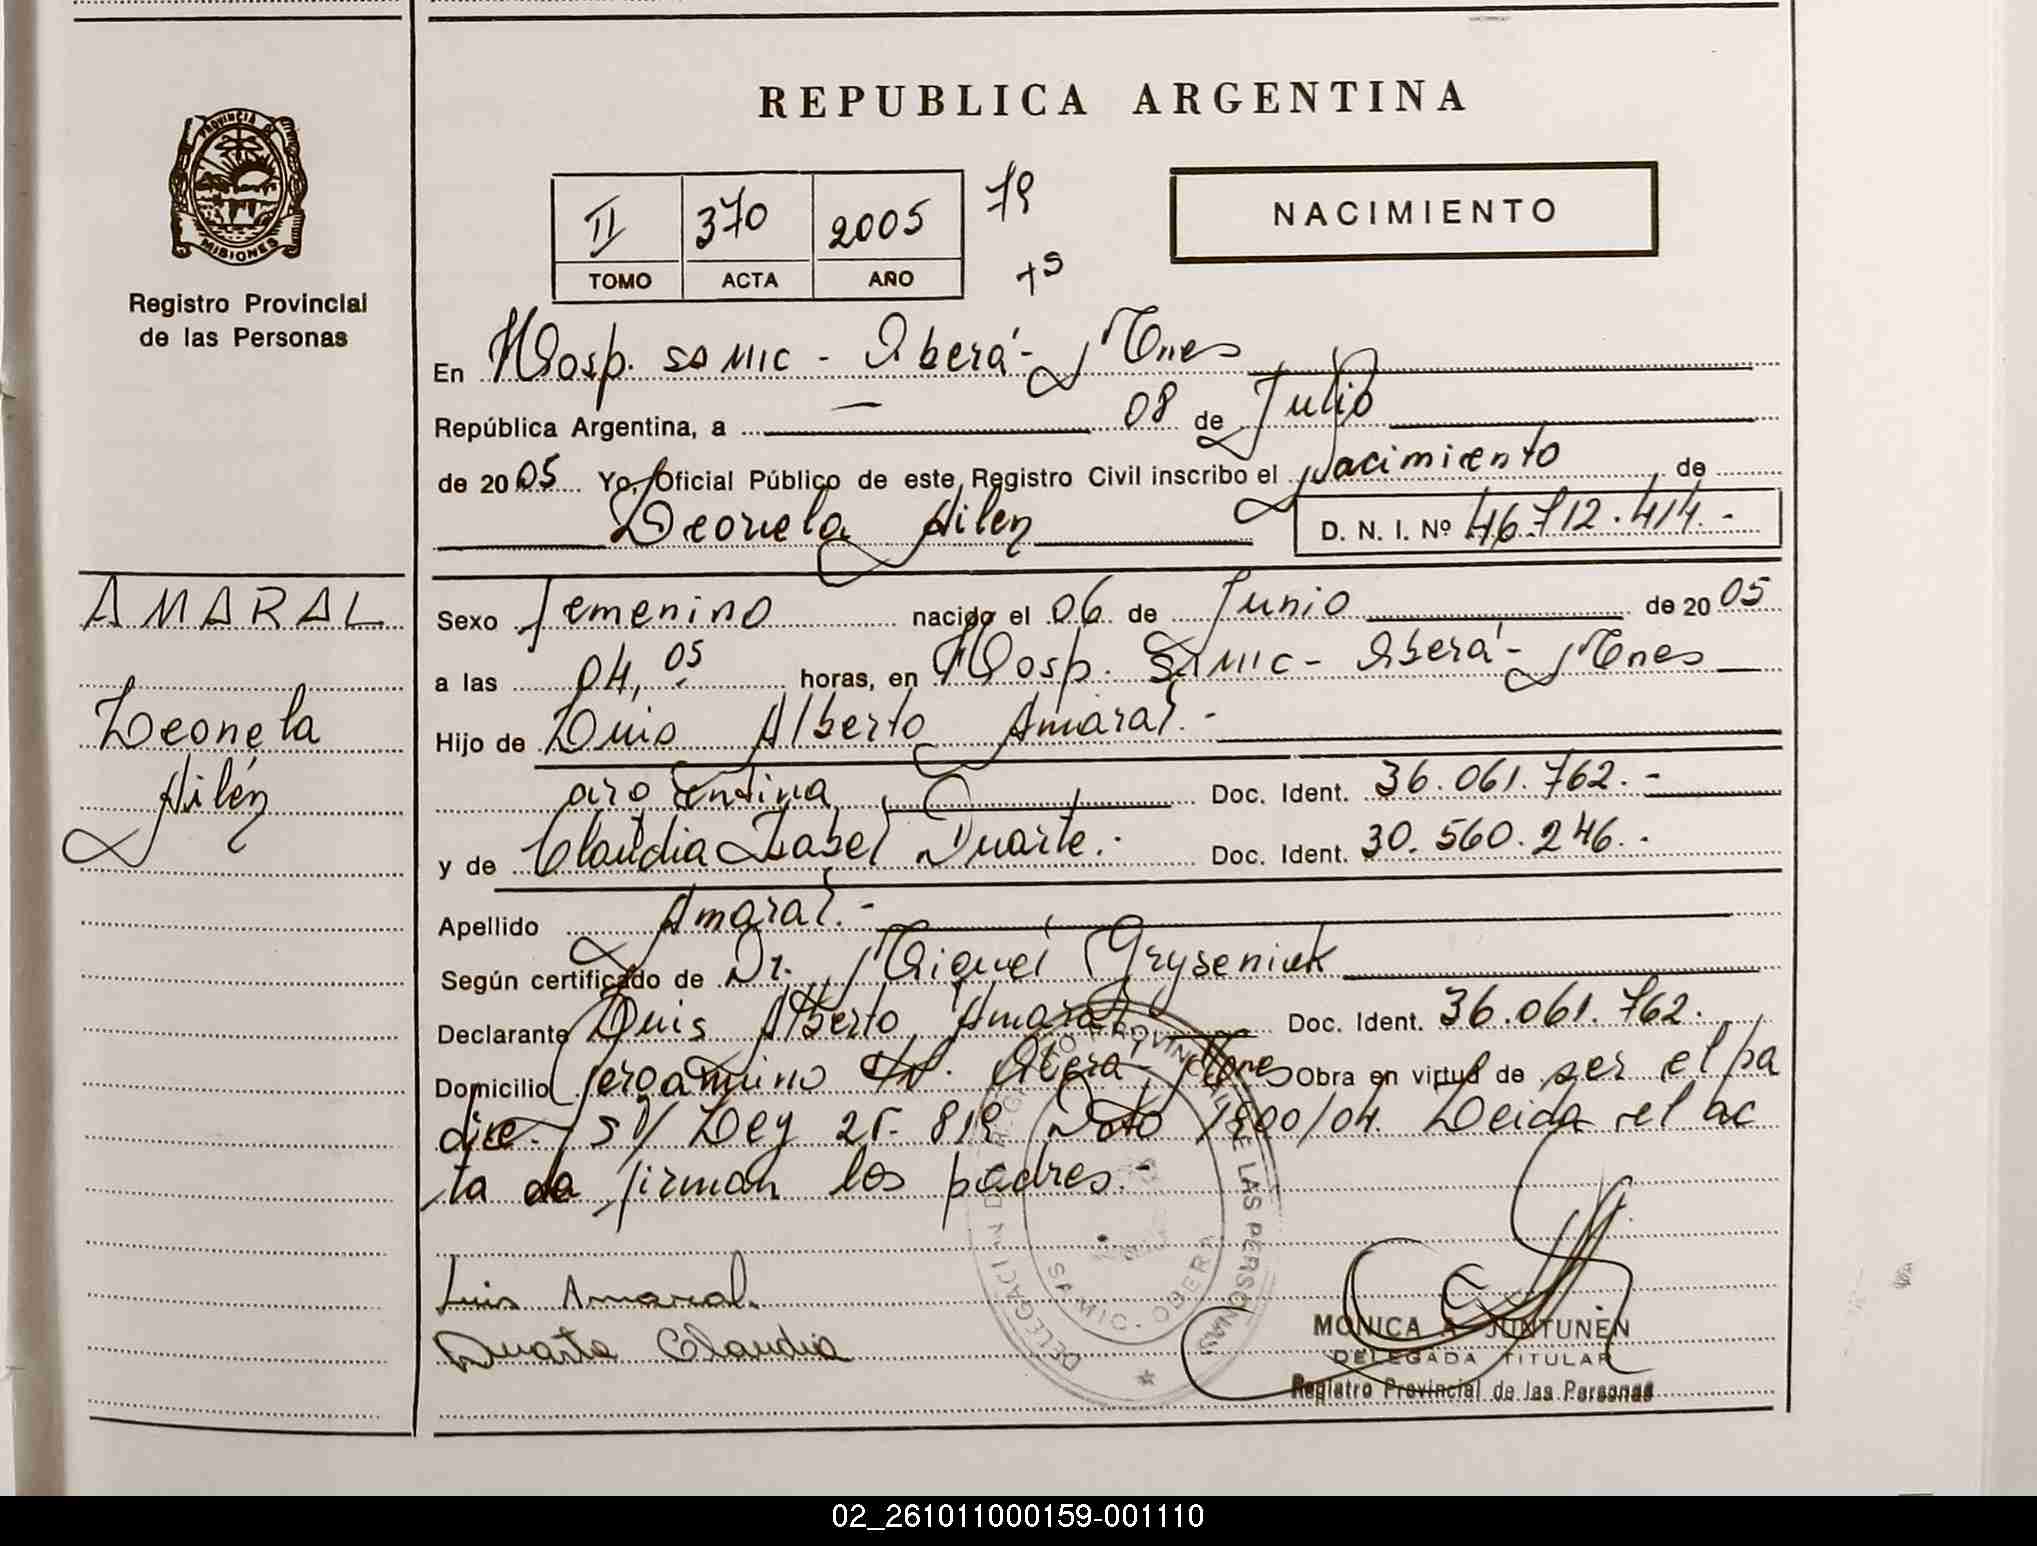 REPUBLICA ARGENTINA
PROVINCIA DE
MISIONES
Registro Provincial
de las Personas
II 370 2005 79
TOMO ACTA AÑO
+S
NACIMIENTO
En Hosp. SAMIC - Oberá - Mnes
República Argentina, a 08 de Julio
de 2005 Yo, Oficial Público de este Registro Civil inscribo el Nacimiento de
Leonela Ailen D. N. I. Nº 46.712.414.-
AMARAL
Leonela
Ailén
Sexo Femenino nacido el 06 de Junio de 2005
a las 04,05 horas, en Hosp. SAMIC - Oberá - Mnes
Hijo de Luis Alberto Amaral.-
argentina Doc. Ident. 36.061.762.-
y de Claudia Isabel Duarte.- Doc. Ident. 30.560.246.-
Apellido Amaral.-
Según certificado de Dr. Miguel Gryseniuk
Declarante Luis Alberto Amaral Doc. Ident. 36.061.762.
Domicilio Pergamino S/N. Oberá, Mnes Obra en virtud de ser el pa
dre. S/ Ley 25.819 Dto 1900/04. Leida el ac
ta la firman los padres.-
Luis Amaral.
Duarte Claudia
DELEGACION DEL REGISTRO PROVINCIAL DE LAS PERSONAS
SAMIC - OBERA
MONICA A. JUNTUNEN
DELEGADA TITULAR
Registro Provincial de las Personas
02_261011000159-001110